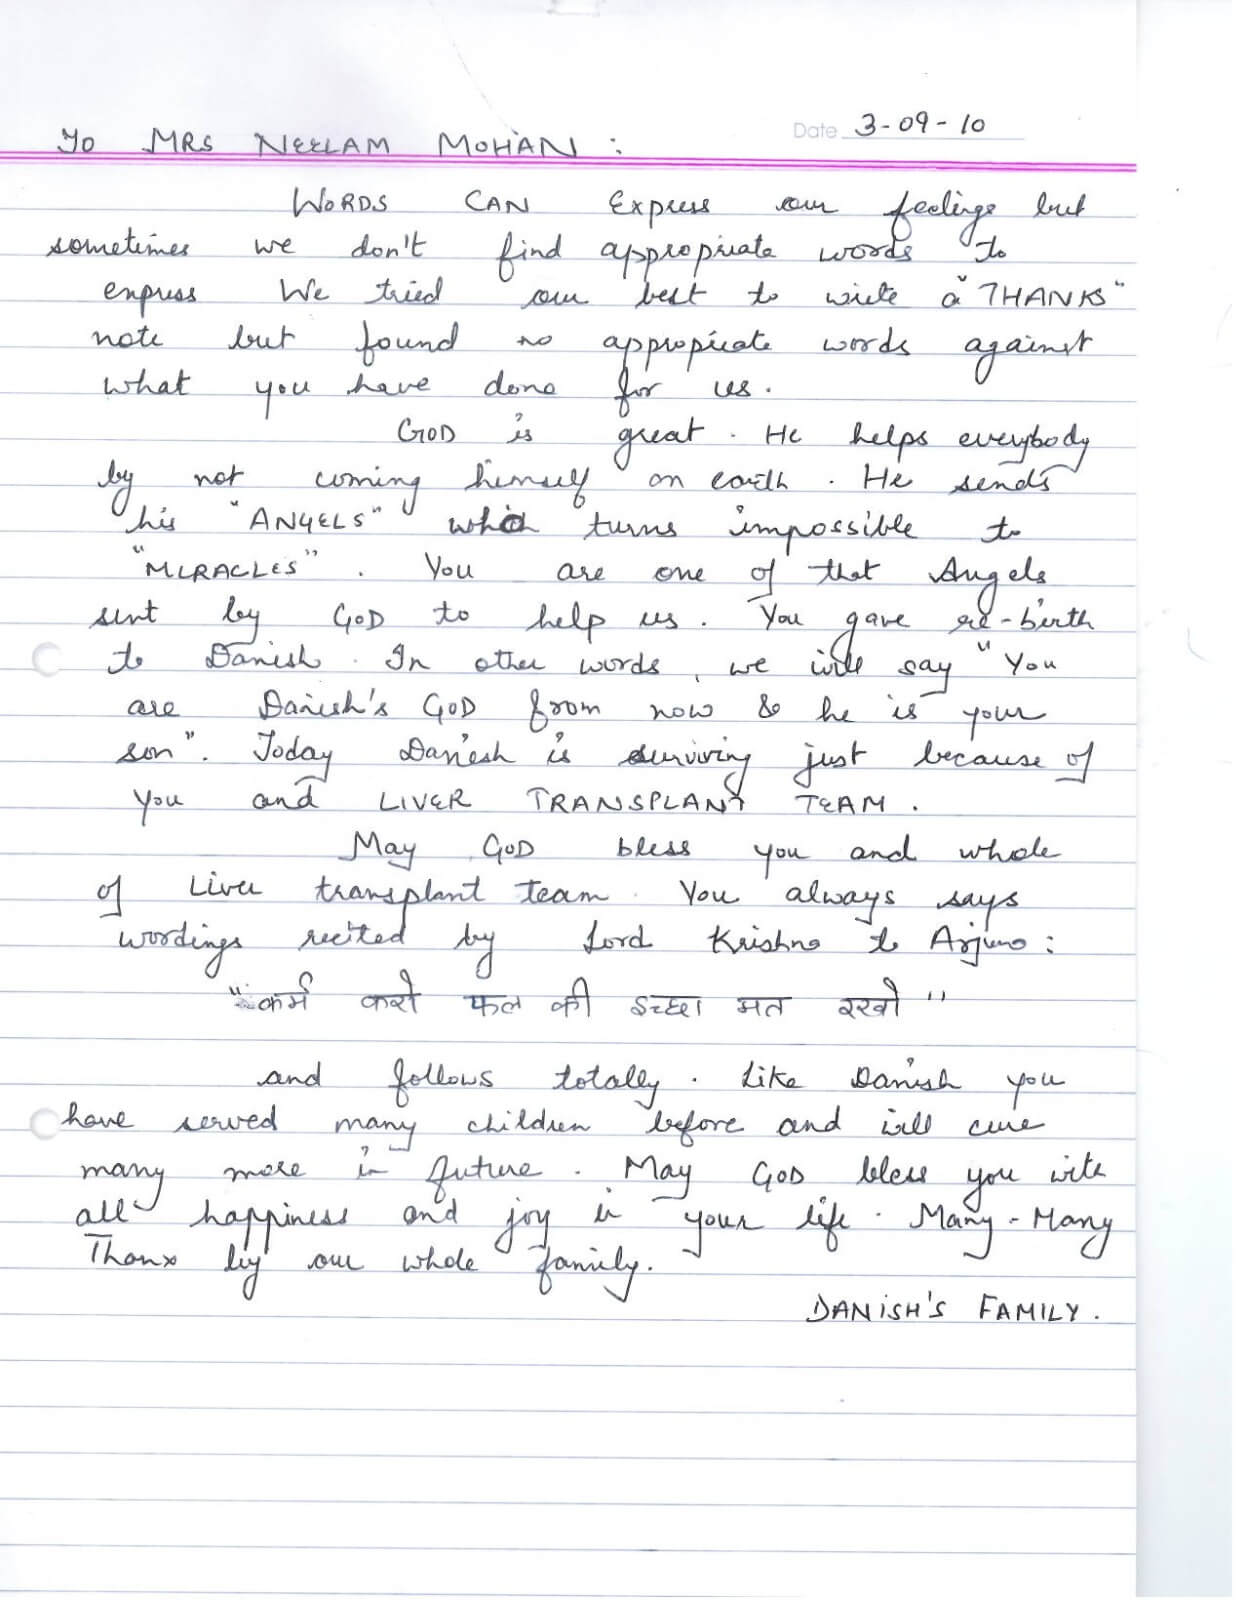 Date 3-09-10
To MRS NEELAM MOHAN :
WORDS CAN Express our feelings but
sometimes we don't find appropriate words to
express We tried our best to write a "THANKS"
note but found no appropriate words against
what you have done for us.
GOD is great. He helps everybody
by not coming himself on earth. He sends
his "ANGELS" which turns impossible to
"MIRACLES". You are one of that Angels
sent by GOD to help us. You gave re-birth
to Danish. In other words, we will say "You
are Danish's GOD from now & he is your
son". Today Danish is surviving just because of
You and LIVER TRANSPLANT TEAM.
May GOD bless you and whole
of Liver transplant team. You always says
wordings recited by Lord Krishna to Arjuna :
"कर्म करो फल की इच्छा मत रखो"
and follows totally. Like Danish you
have served many children before and will cure
many more in future. May GOD bless you with
all happiness and joy in your life. Many-Many
Thanx by our whole family.
DANISH'S FAMILY.